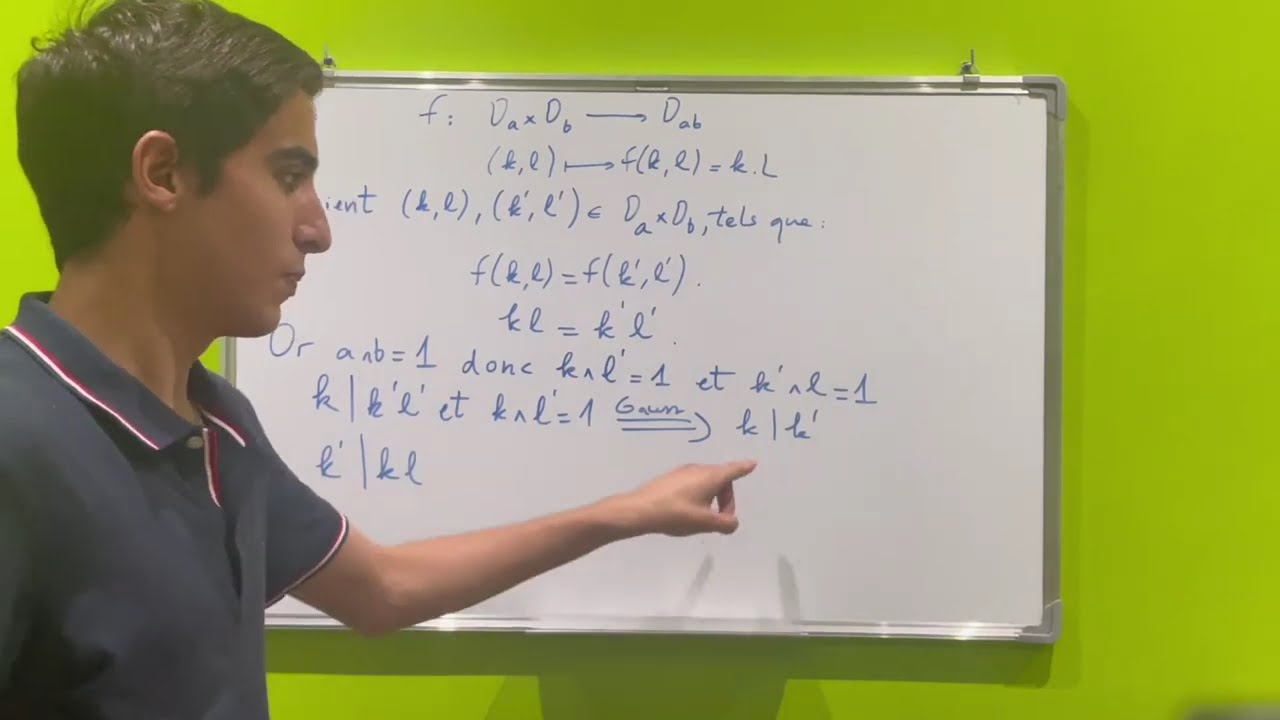 f: D_a × D_b ⟶ D_ab
(k,l) ⟼ f(k,l) = k.L
ient (k,l), (k',l') ∈ D_a × D_b, tels que:
f(k,l) = f(k',l').
kl = k'l'.
Or a∧b=1 donc k∧l'=1 et k'∧l=1
k | k'l' et k∧l'=1 Gauss ⟹ k | k'
k' | kl